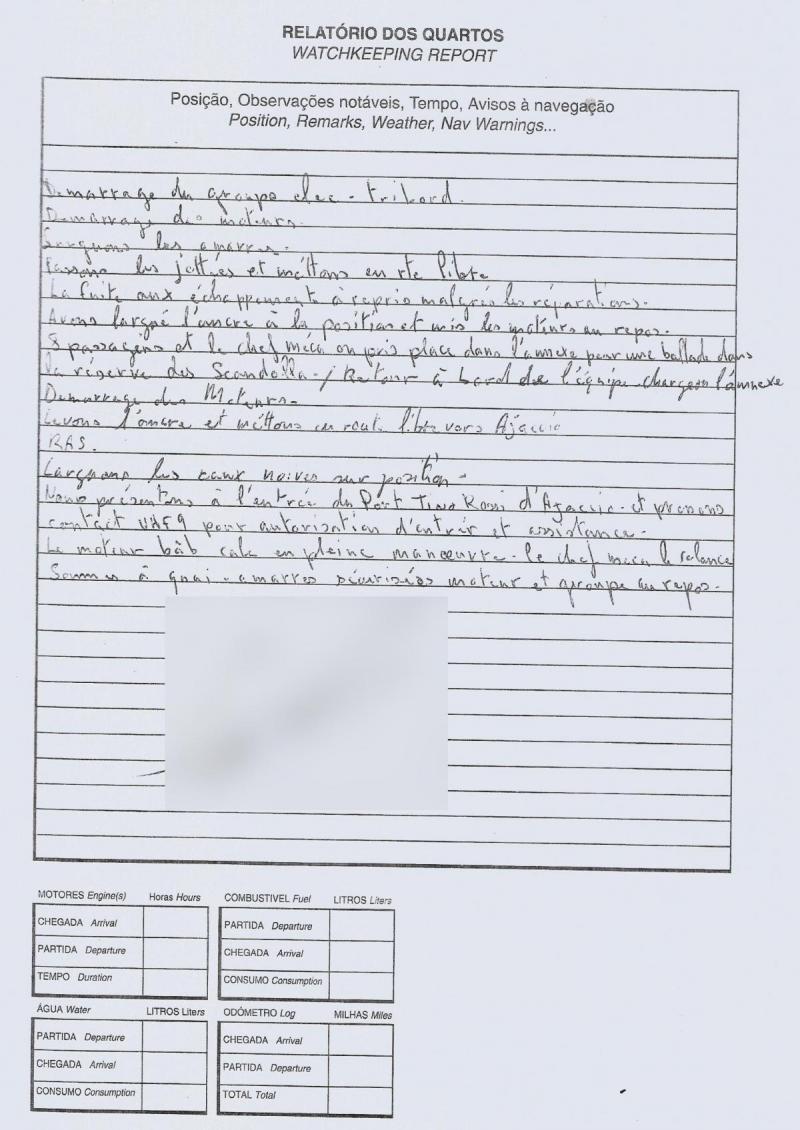 RELATÓRIO DOS QUARTOS
WATCHKEEPING REPORT
Posição, Observações notáveis, Tempo, Avisos à navegação
Position, Remarks, Weather, Nav Warnings...
Demarrage du groupe elec - tribord.
Demarrage des moteurs.
Larguons les amarres.
Passons les jettées et méttons en rte libre
La fuite aux échappements à repris malgrés les réparations.
Avons largué l'ancre à la position et mis les moteurs au repos.
8 passagers et le chef méca on pris place dans l'annexe pour une ballade dans
la réserve des Scandolla - / Retour à bord de l'équipe. Chargeons l'annexe
Demarrage des Moteurs -
Levons l'ancre et méttons en route libre vers Ajaccio
RAS.
Larguons les eaux noires sur position -
Nous présentons à l'entrée du Port Tino Rossi d'Ajaccio - et prenons
contact VHF9 pour autorisation d'entrér et assistance -
Le moteur bâb cale en pleine manœuvre - le chef meca le relance
Sommes à quai - amarres sécurisées moteur et groupe au repos -
MOTORES Engine(s) Horas Hours
CHEGADA Arrival
PARTIDA Departure
TEMPO Duration
COMBUSTIVEL Fuel LITROS Liters
PARTIDA Departure
CHEGADA Arrival
CONSUMO Consumption
ÁGUA Water LITROS Liters
PARTIDA Departure
CHEGADA Arrival
CONSUMO Consumption
ODÓMETRO Log MILHAS Miles
CHEGADA Arrival
PARTIDA Departure
TOTAL Total